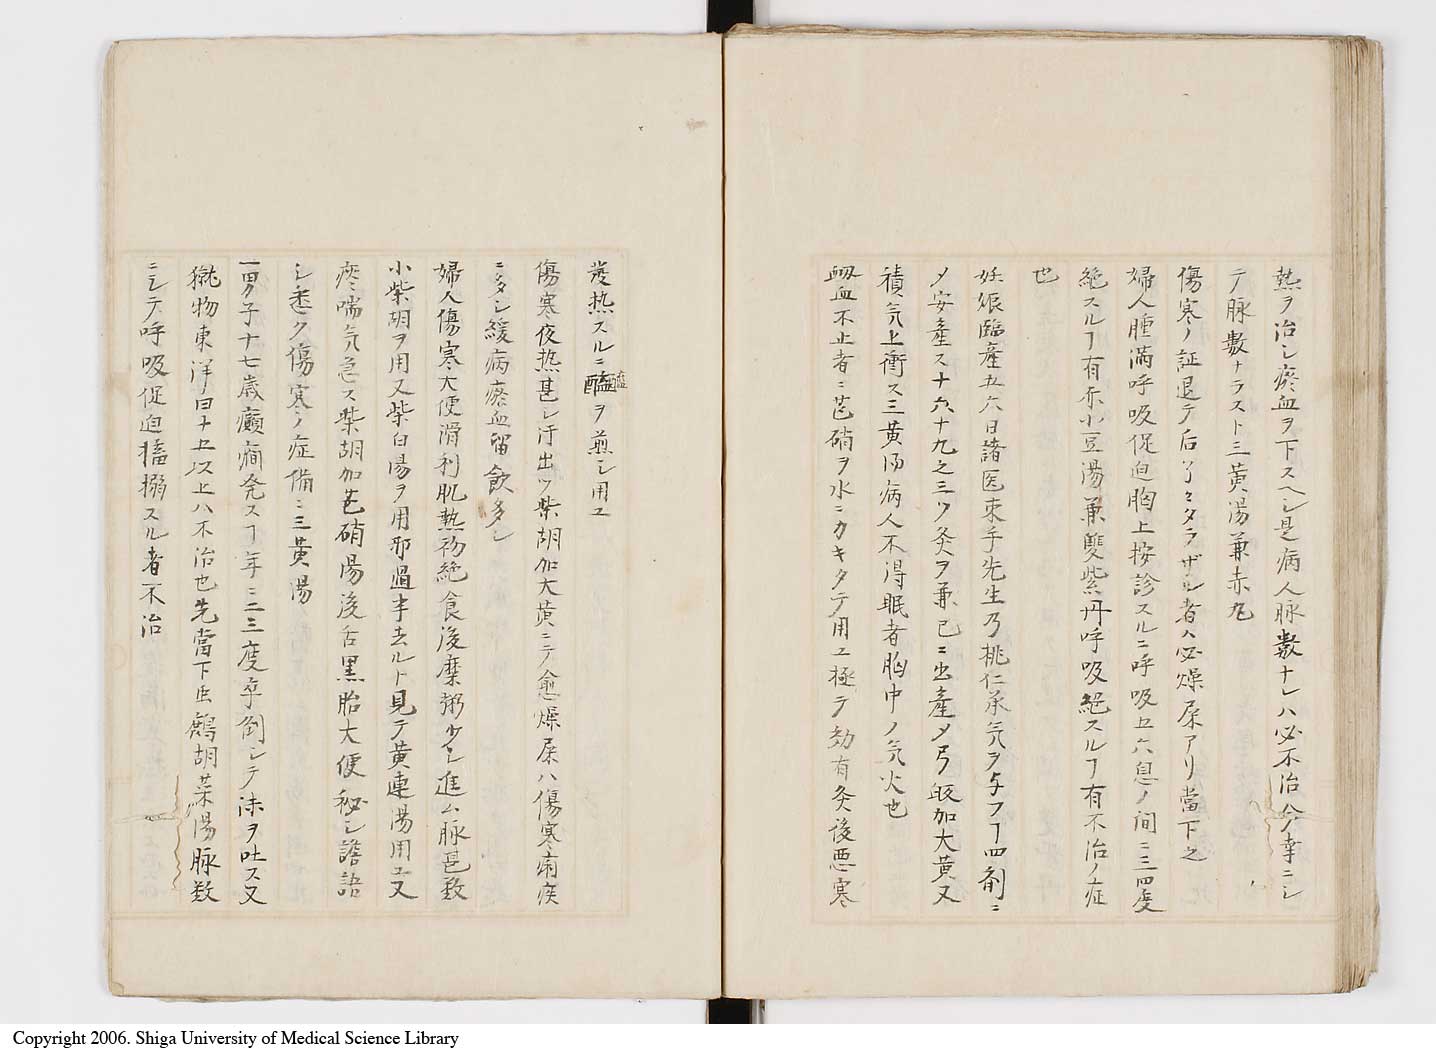 熱ヲ治シ瘀血ヲ下スヘシ是病人脉數ナレハ必不治今ノ幸ニシ
テ脉數ナラスト三黄湯兼赤丸
傷寒ノ証退テ后了々タラザル者ハ必燥屎アリ當下之
婦人腫満呼吸促迫胸上按診スルニ呼吸五六息ノ间ニ三四度
絶スルヿ有赤小豆湯兼雙紫丹呼吸絶スルヿ有不治ノ症
也
妊娠臨產五六日諸医束手先生乃桃仁承気ヲ与フヿ四劑ニ
〆安產ス十六十九之三ツ灸ヲ兼已ニ出產〆芎皈加大黄又
積気上衝ス三黄湯病人不淂眠者胸中ノ気火也
衂血不止者ニ芒硝ヲ水ニカキタテ用ユ極テ効有灸後悪寒
发热スルニ醢ヲ煎シ用ユ
傷寒夜热甚シ汗出ツ柴胡加大黄ニテ愈燥屎ハ傷寒痢疾
ニ多シ緩病瘀血留飲多シ
婦人傷寒大便滑利肌熱初絶食後糜粥少シ進ム脉甚数
小柴胡ヲ用又柴白湯ヲ用邪過半去ルト見テ黄連湯用ユ又
疼喘気急ス柴胡加芒硝湯後舌黒胎大便秘シ譫語
シ悉ク傷寒ノ症備ニ三黄湯
一男子十七歳癲癇発スヿ年ニ二三度卒倒シテ沫ヲ吐ス又
獃物東洋曰十五以上ハ不治也先當下〆鷓胡菜湯脉数
ニシテ呼吸促迫搐搦スル者不治